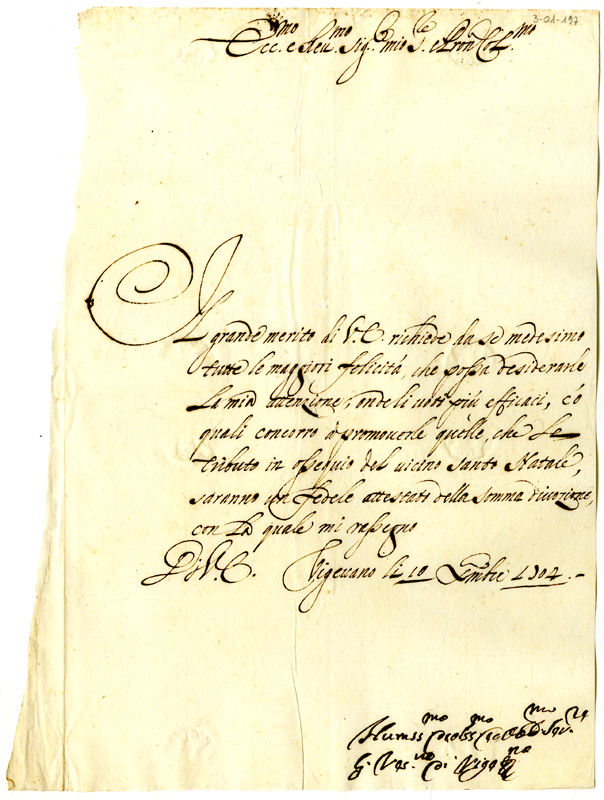 3-01-197
Ecc.mo e Rev.mo Sig.re mio S.re e Pron Col.mo
Il grande merito di V. E. richiede da se medesimo
tutte le maggiori felicità, che possa desiderarle
la mia attenzione; onde li voti più efficaci, c'o
quali concorro à promoverle quelle, che le
tributo in ossequio del vicino Santo Natale,
saranno un fedele attestato della somma divozione,
con la quale mi rassegno
Di V. E. Vigevano li 10 Xmbre 1704.
Humiss.mo
G. Ves.vo di Vige.no